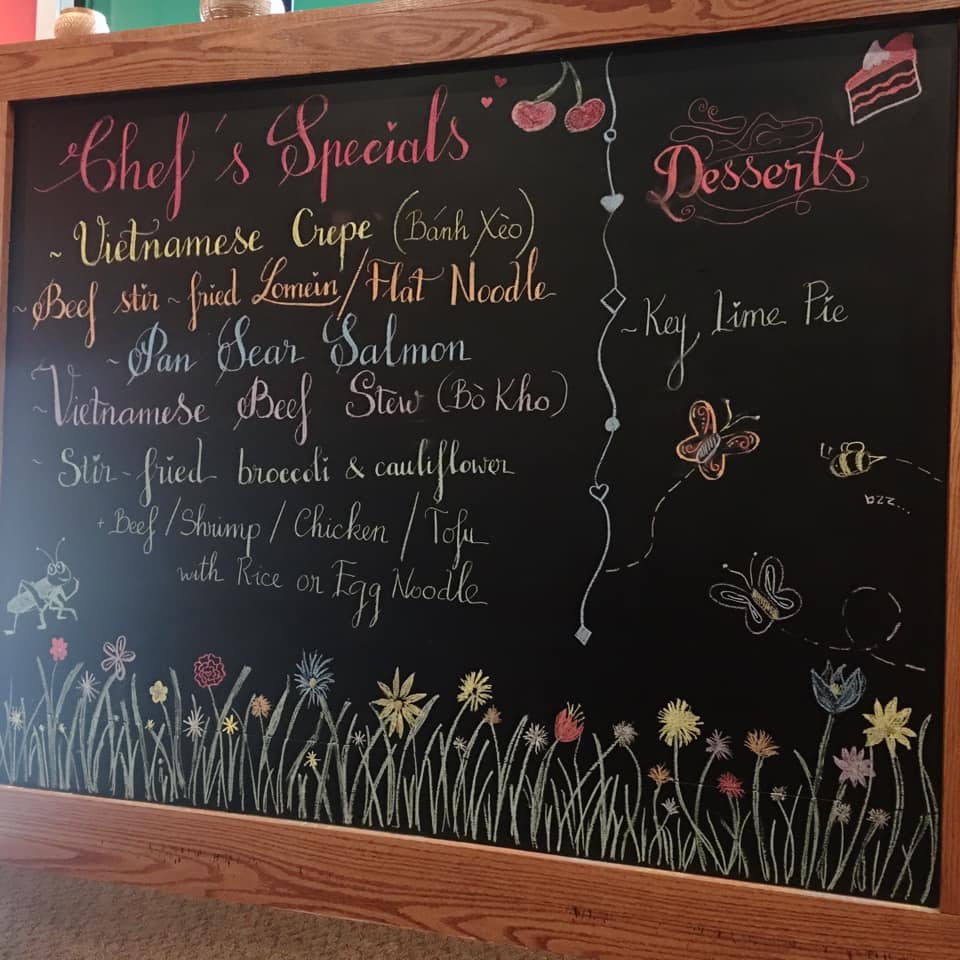 Chef's Specials
~ Vietnamese Crepe (Bánh Xèo)
~ Beef stir-fried Lomein/Flat Noodle
~ Pan Sear Salmon
~ Vietnamese Beef Stew (Bò Kho)
~ Stir-fried broccoli & cauliflower
+ Beef / Shrimp / Chicken / Tofu
with Rice or Egg Noodle
Desserts
~ Key Lime Pie